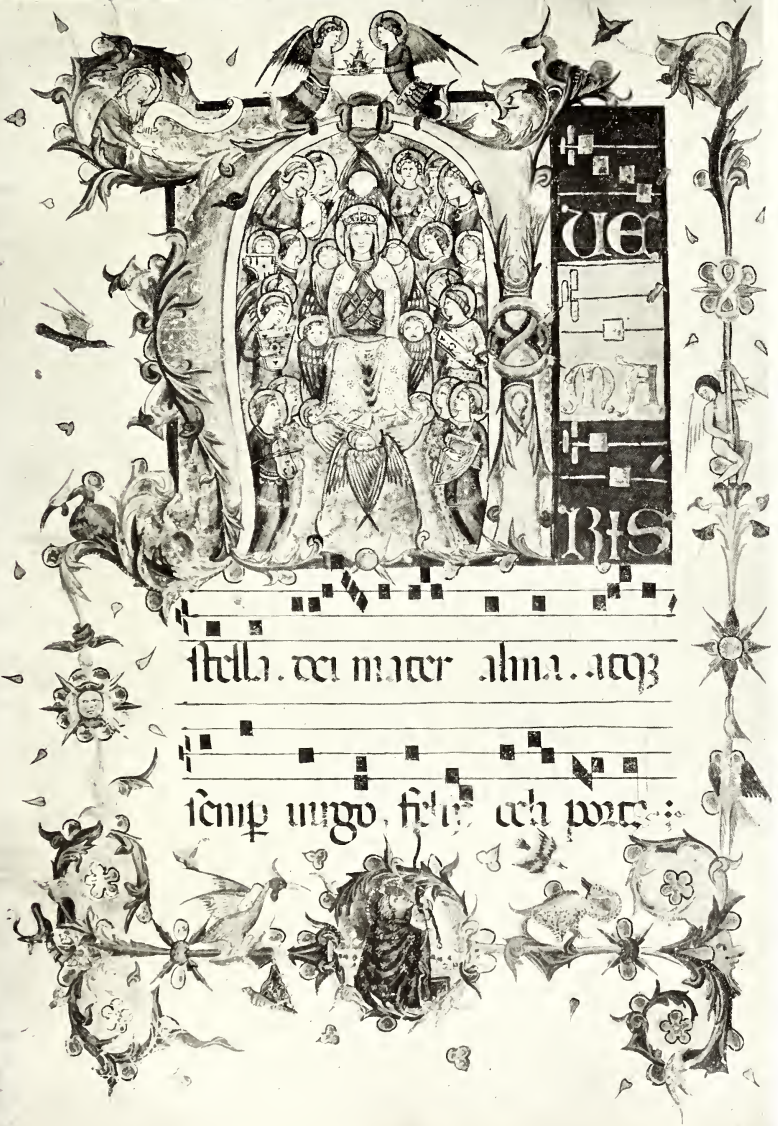 AUE
MA
RIS
stella. dei mater alma. atqȝ
semꝑ uirgo. felix celi porta: